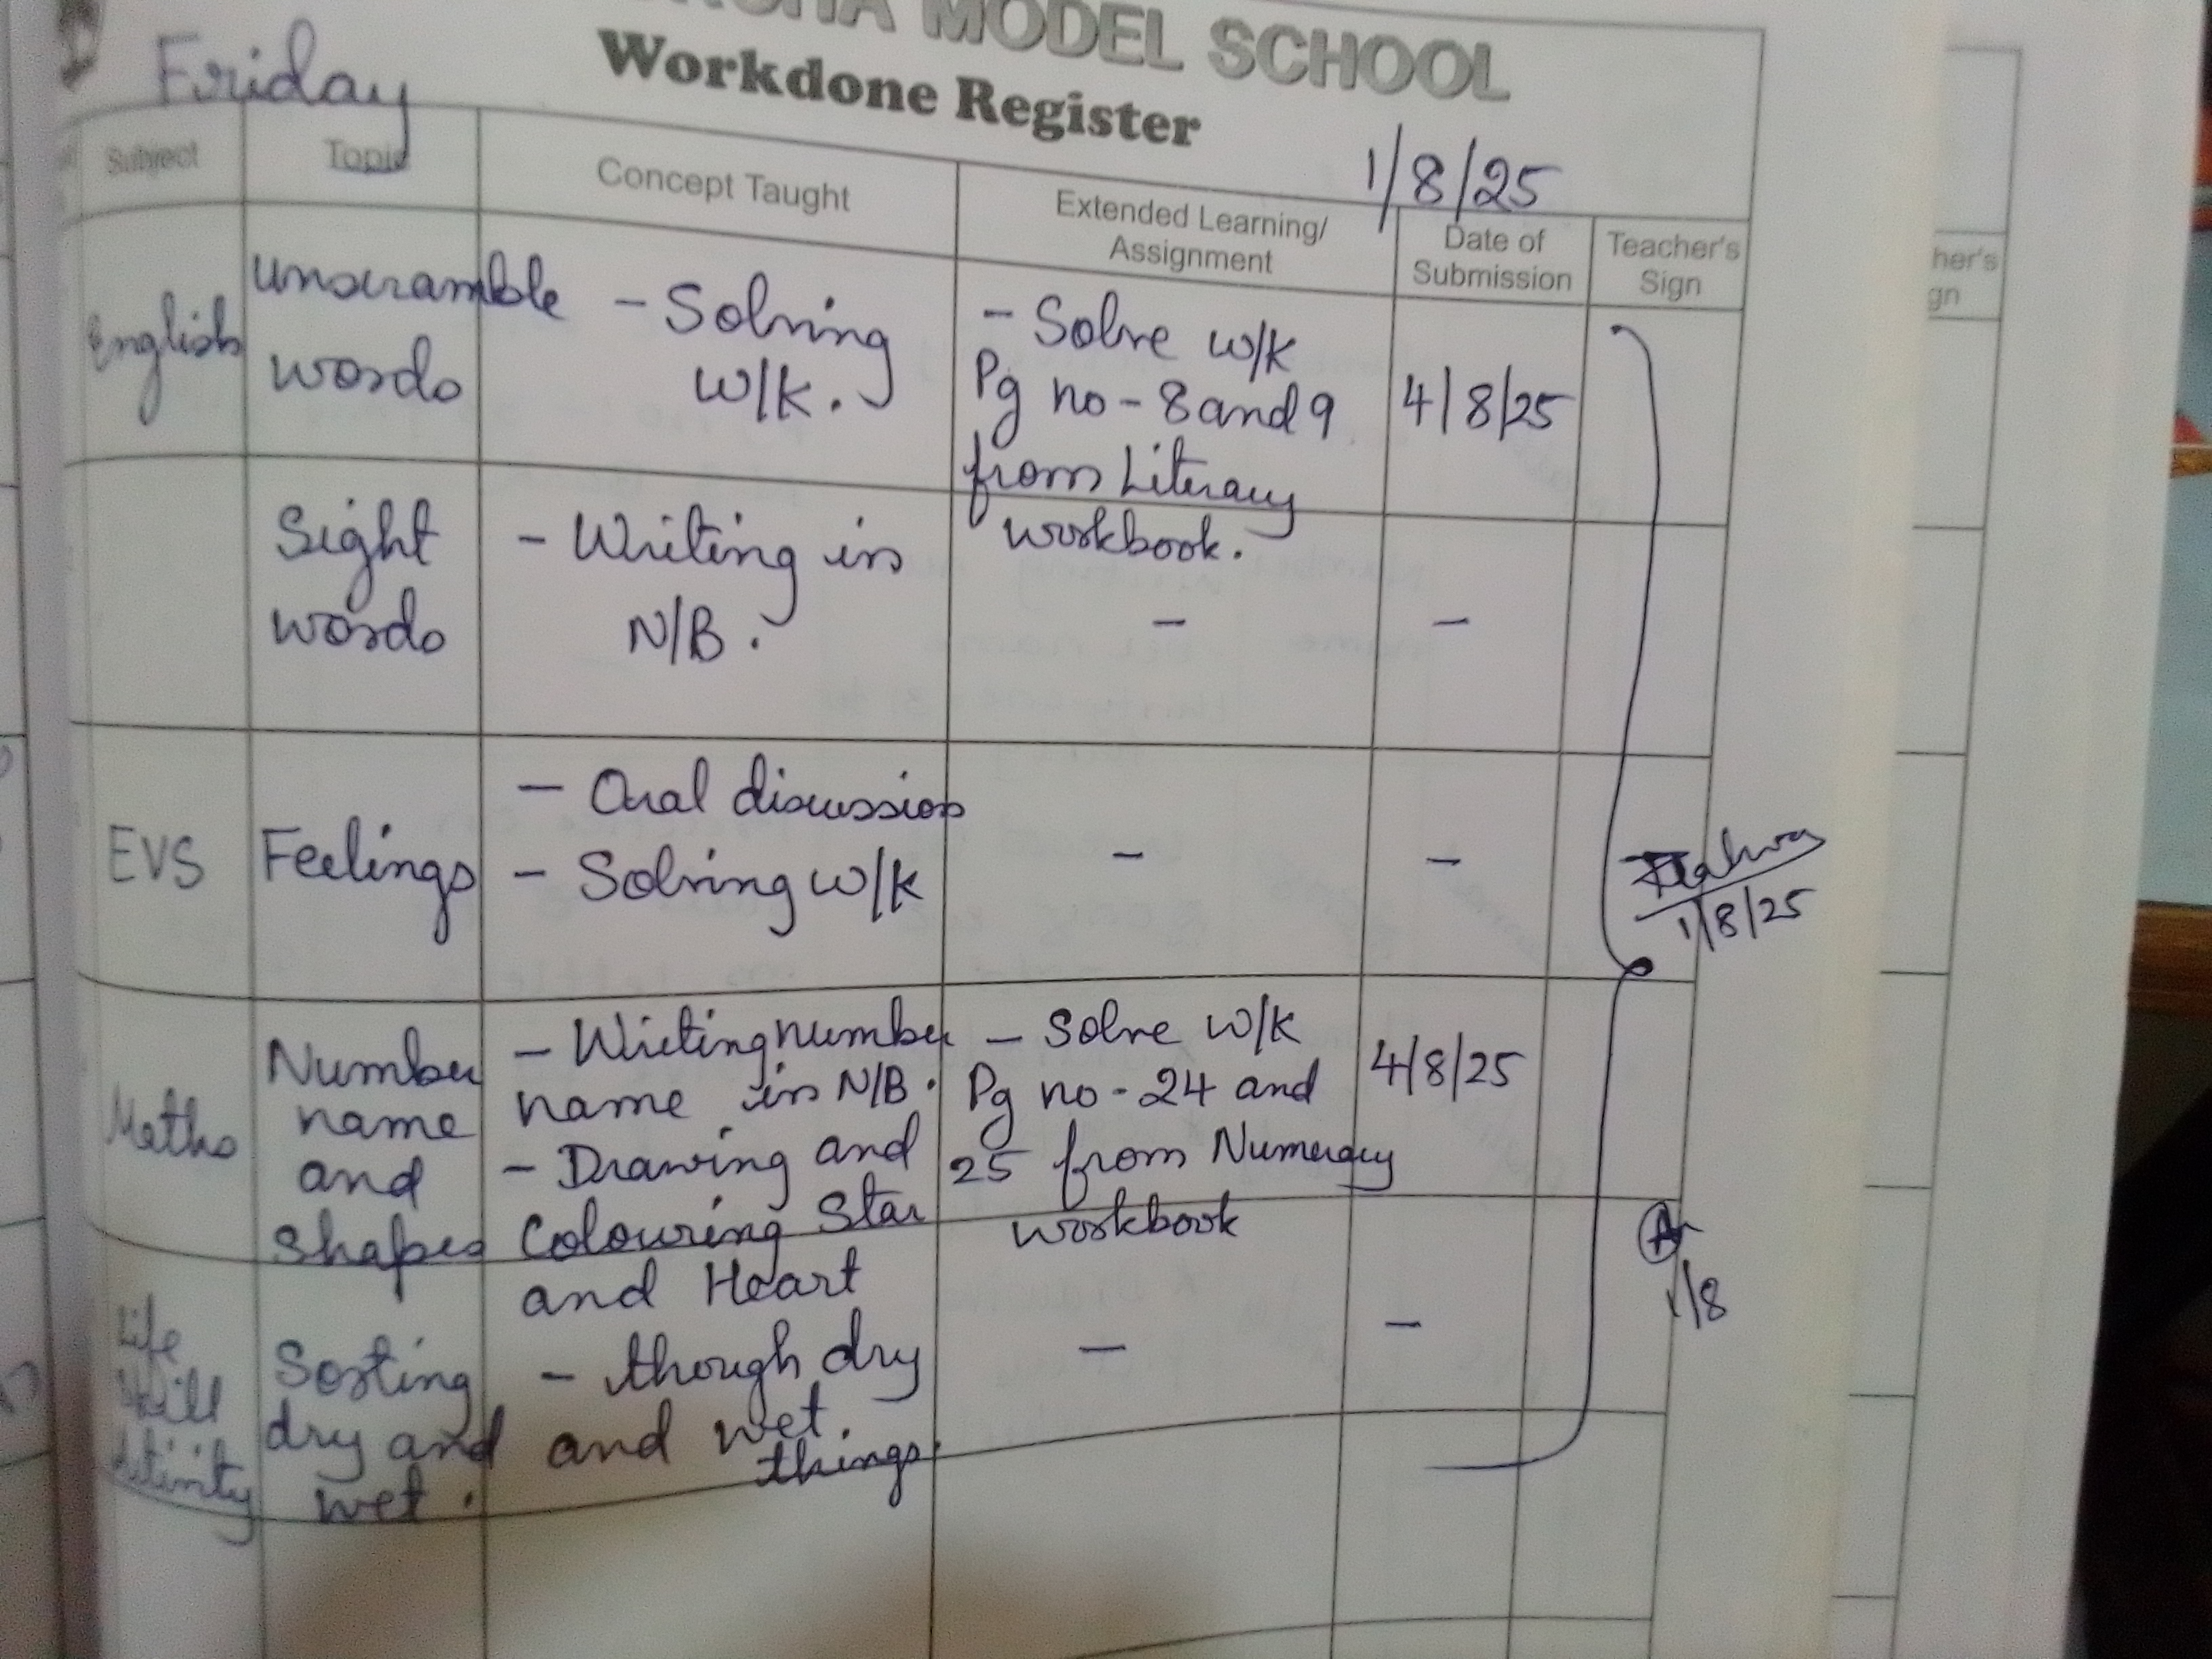 MODEL SCHOOL
Workdone Register
Friday
1/8/25
Subject Topic Concept Taught Extended Learning/ Assignment Date of Submission Teacher's Sign
English
unscramble
words
- Solving
W/K.
- Solve W/K
Pg no - 8 and 9
from Literacy
workbook.
4/8/25
Sight
words
- Writing in
N/B.
-
-
EVS
Feelings
- Oral discussion
- Solving W/K
-
-
1/8/25
Maths
Number
name
and
shapes
- Writing number
name in N/B.
- Drawing and
Colouring Star
and Heart
- Solve W/K
Pg no - 24 and
25 from Numeracy
workbook
4/8/25
1/8
Life
Skill
Activity
Sorting
dry and
wet.
- though dry
and wet.
things.
-
-
her's
gn